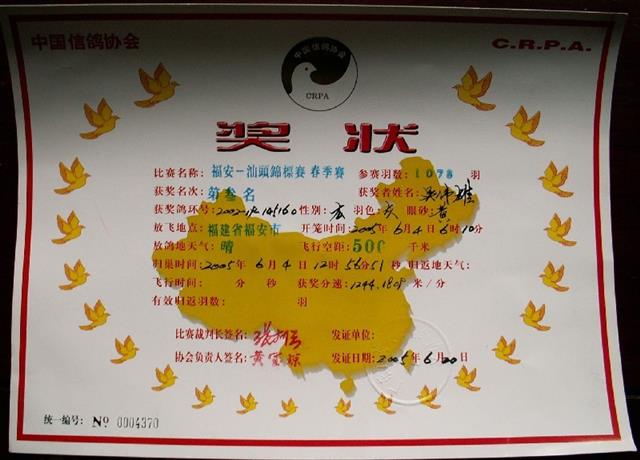 中国信鸽协会
C.R.P.A.
中国信鸽协会
CRPA
奖 状
比赛名称: 福安－汕頭錦標賽 春季賽 参赛羽数: 1078 羽
获奖名次: 第叁名 获奖者姓名:
获奖鸽环号: 性别: 羽色: 灰 眼砂: 黄
放飞地点: 福建省福安市 开笼时间: 2005年 6月 4日 6时10分
放鸽地天气: 晴 飞行空距: 500 千米
归巢时间: 2005年 6月 4日 12时 56分51秒 归返地天气:
飞行时间: 分 秒 获奖分速: 1244.1808 米/分
有效归返羽数: 羽
比赛裁判长签名: 发证单位:
协会负责人签名: 发证日期: 2005年 6月20日
统一编号: № 0004370